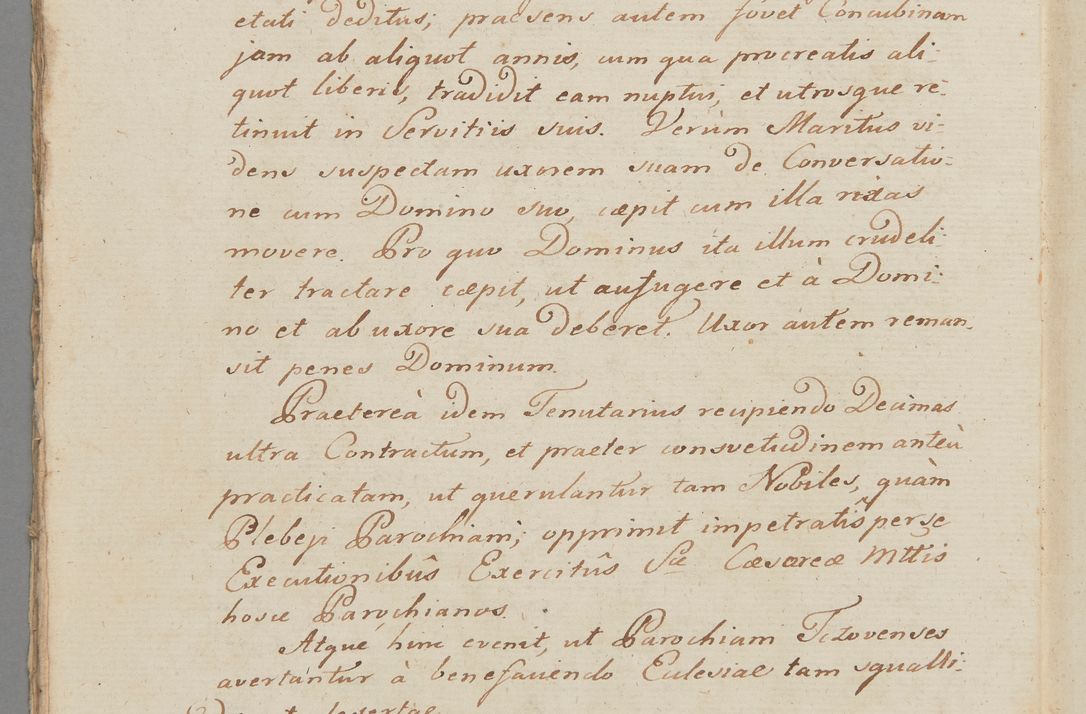 etati deditus; praesens autem fovet Concubinam
jam ab aliquot annis, cum qua procreatis ali-
quot liberis, tradidit eam nuptui, et utrosque re-
tinuit in Servitiis suis. Verùm Maritus vi-
dens suspectam uxorem suam de Conversatio-
ne cum Domino suo, caepit cum illa rixas
movere. Pro quo Dominus ita illum crudeli-
ter tractare caepit, ut aufugere et à Domi-
no et ab uxore sua deberet. Uxor autem reman-
sit penes Dominum.
Praetereà idem Tenutarius recipiendo Decimas
ultra Contractum, et praeter consvetudinem anteà
practicatam, ut querulantur tam Nobiles, quàm
Plebeji Parochiani; opprimit impetratis per se
Executionibûs Exercitûs Sae Caesareae Mttis
hosce Parochianos.
Atque hinc evenit, ut Parochiani Tczovenses
avertantur à benefaciendo Eclesiae tam squalli-
desertae